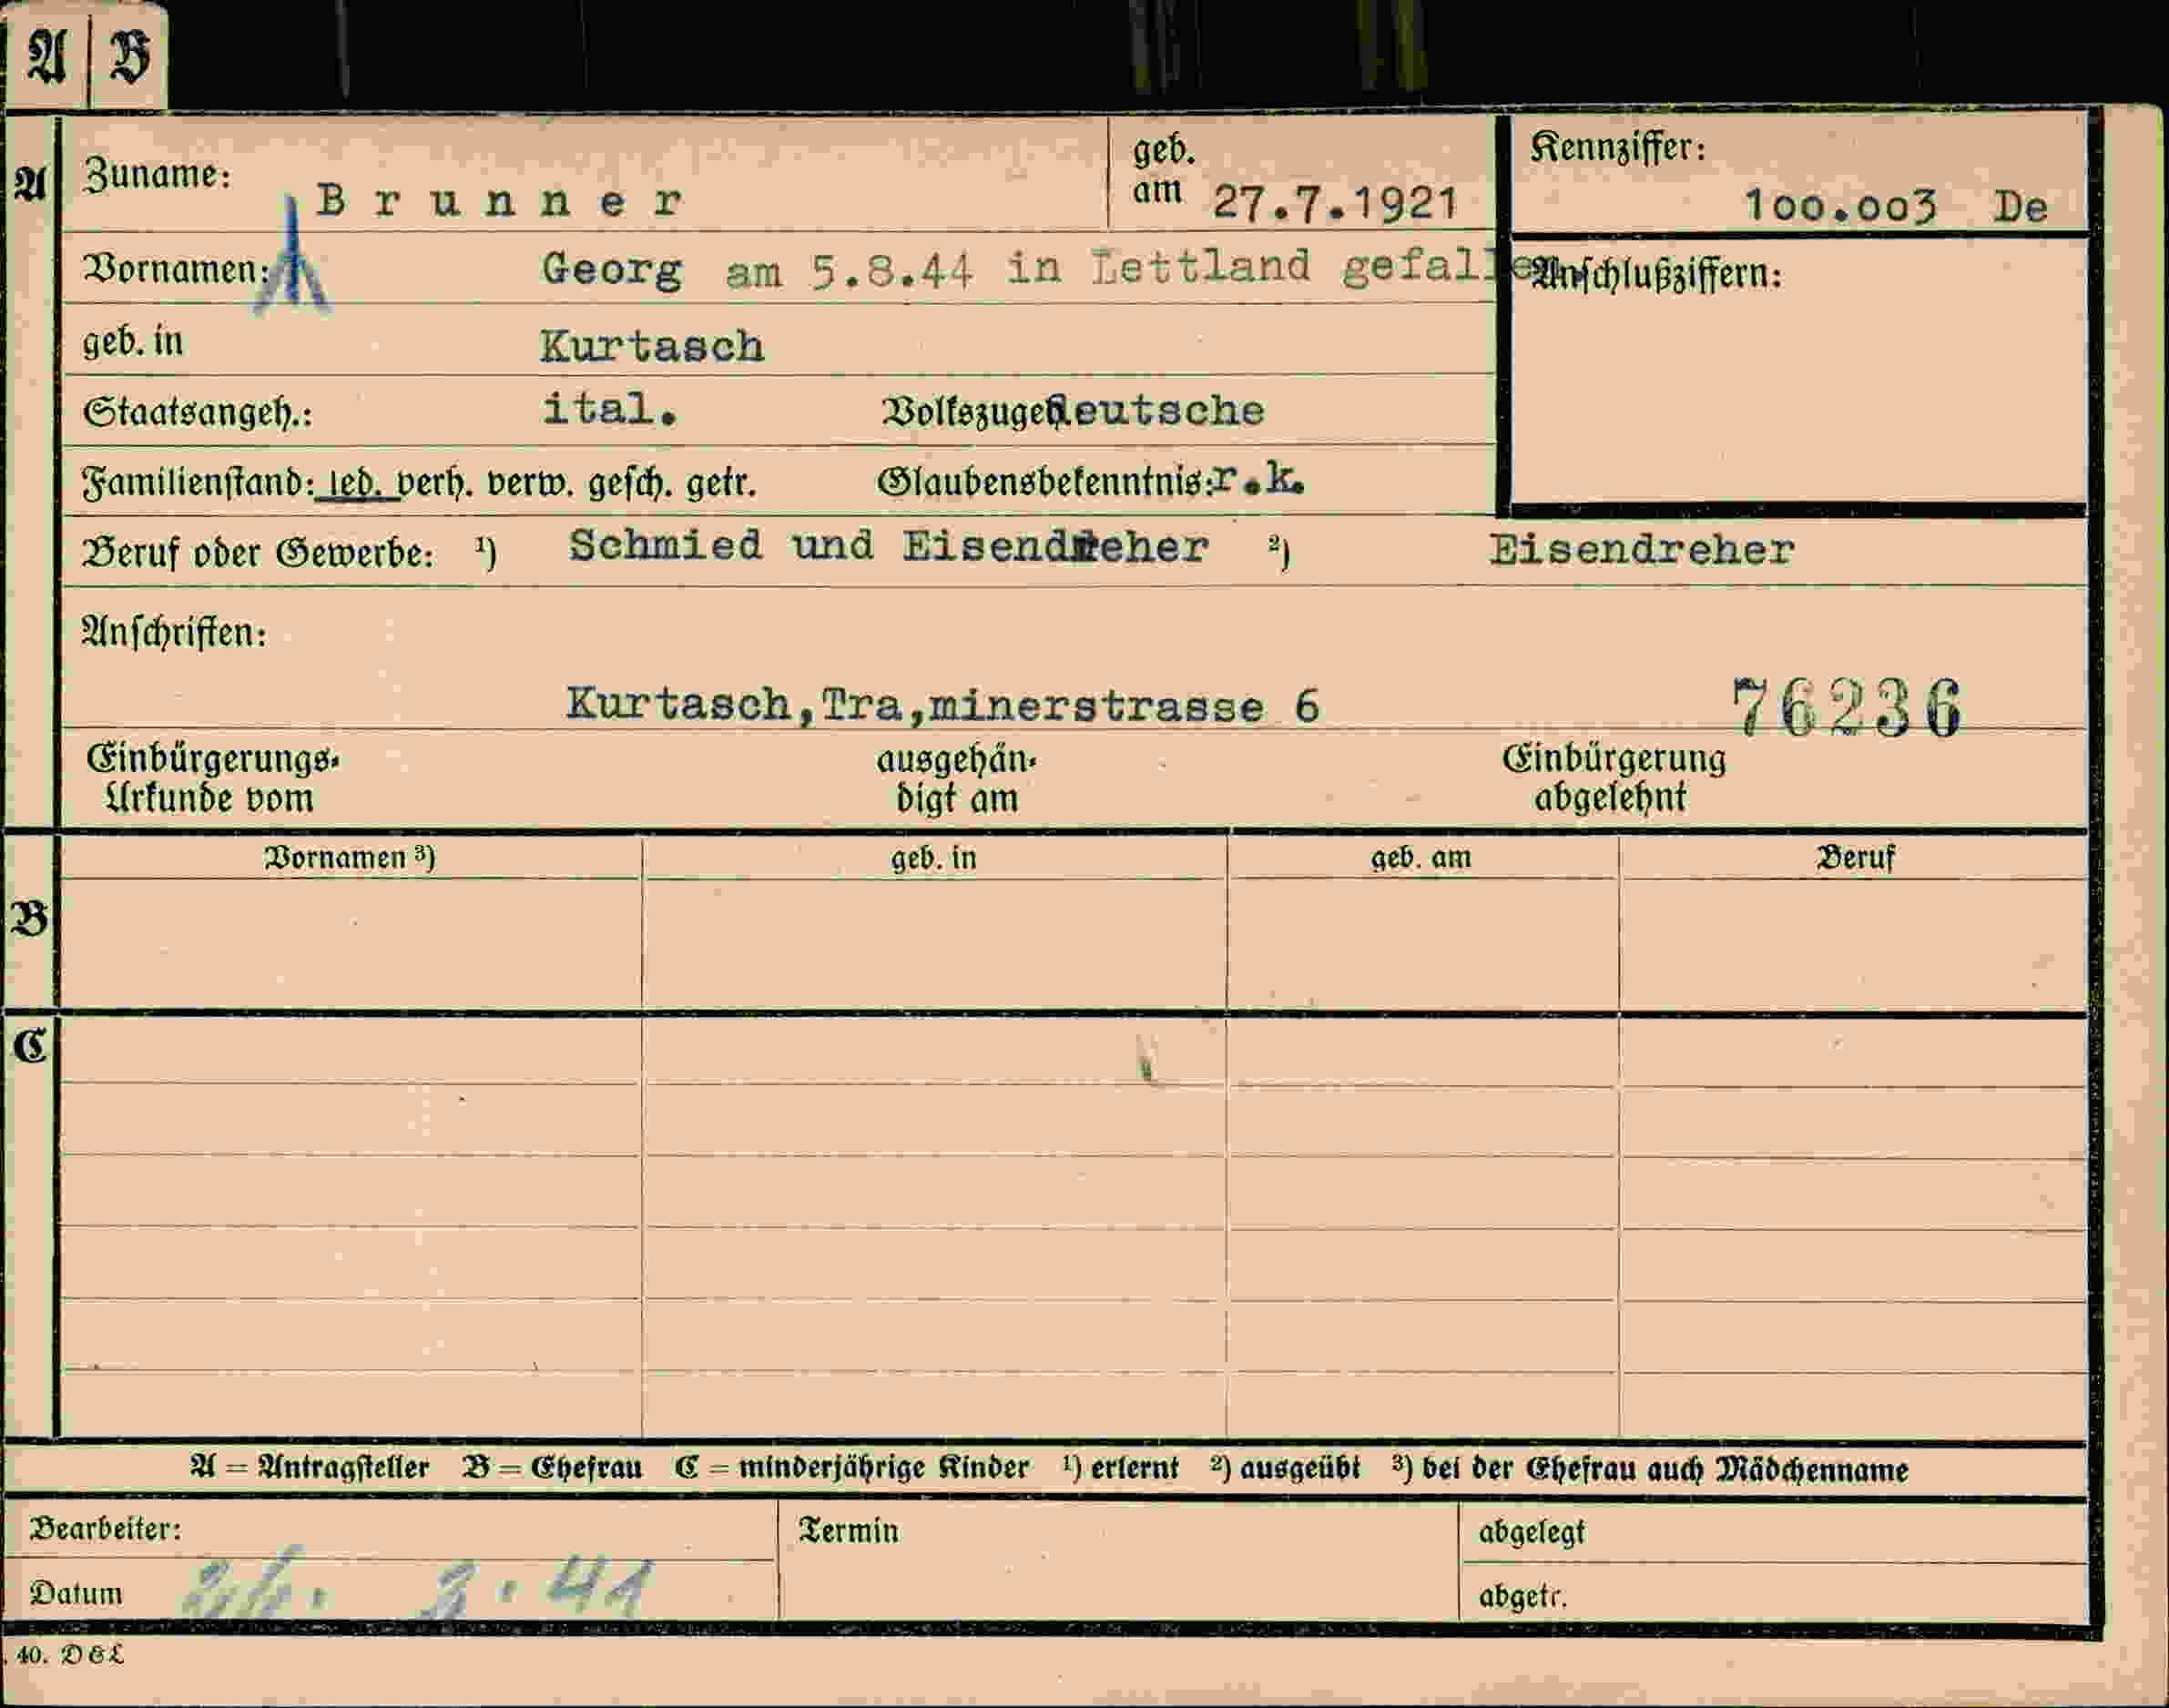 A B
A Zuname: Brunner geb. am 27.7.1921 Kennziffer: 100.003 De
Vornamen: Georg am 5.8.44 in Lettland gefallen Anschlußziffern:
geb. in Kurtasch
Staatsangeh.: ital. Volkszugeh deutsche
Familienstand: led. verh. verw. gesch. getr. Glaubensbekenntnis: r.k.
Beruf oder Gewerbe: ¹) Schmied und Eisendreher ²) Eisendreher
Anschriften:
Kurtasch,Tra,minerstrasse 6 76236
Einbürgerungs- ausgehän- Einbürgerung
Urkunde vom digt am abgelehnt
Vornamen ³) geb. in geb. am Beruf
B
C
A = Antragsteller B = Ehefrau C = minderjährige Kinder ¹) erlernt ²) ausgeübt ³) bei der Ehefrau auch Mädchenname
Bearbeiter: Termin abgelegt
Datum 3.41 abgetr.
40. D&L